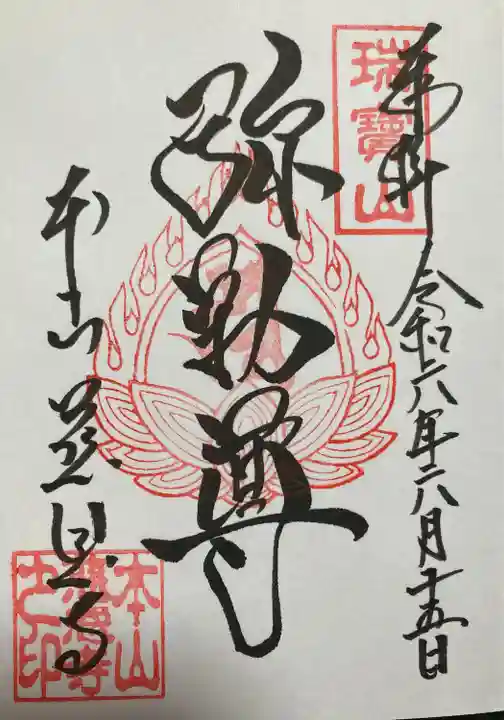 奉拝
瑞寶山
令和六年六月十五日
弥勒尊
本山慈恩寺
本山
慈恩寺
之印